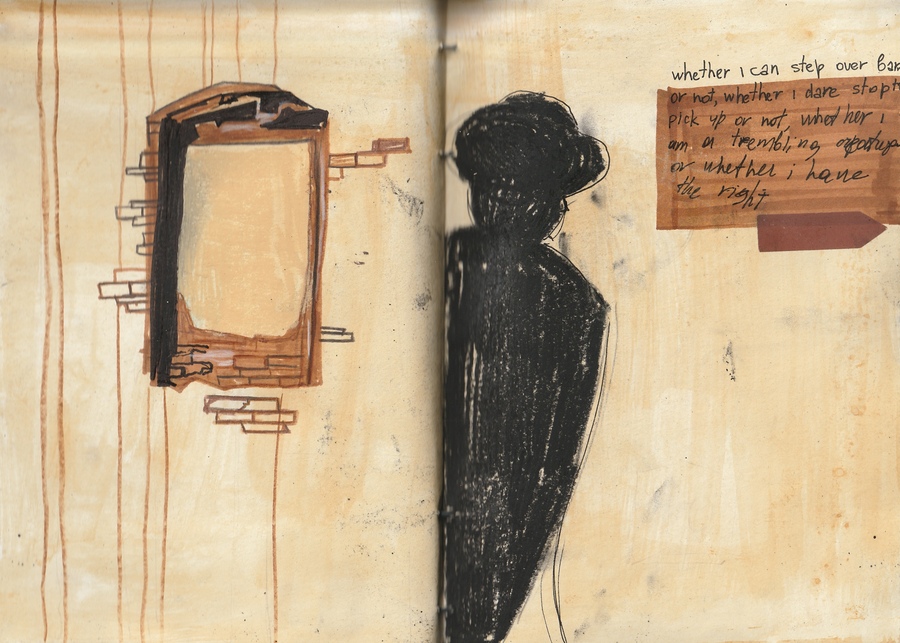 whether i can step over
or not, whether i dare
pick up or not, whether i
am a trembling
or whether i have
the right